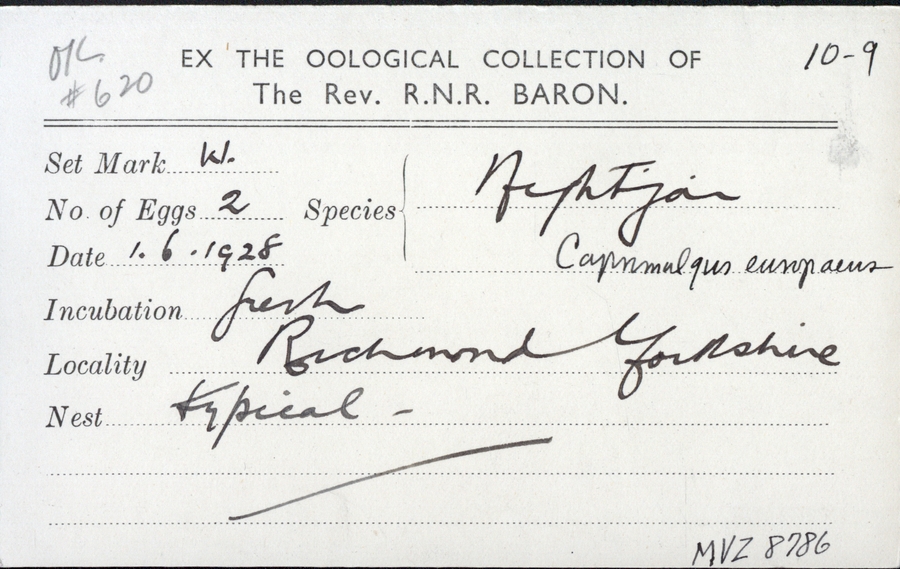 OK
#620
EX THE OOLOGICAL COLLECTION OF
The Rev. R.N.R. BARON.
10-9
Set Mark W.
No. of Eggs 2
Species Nightjar
Caprimulgus europaeus
Date 1.6.1928
Incubation fresh
Locality Richmond Yorkshire
Nest typical -
MVZ 8786